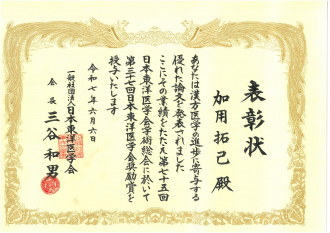 表彰状
加用拓己 殿
あなたは漢方医学の進歩に寄与する
優れた論文を発表されました
ここにその業績をたたえ第七十五回
日本東洋医学会学術総会に於いて
第三十七回日本東洋医学会奨励賞を
授与いたします
令和七年六月六日
一般社団法人日本東洋医学会
会長 三谷和男